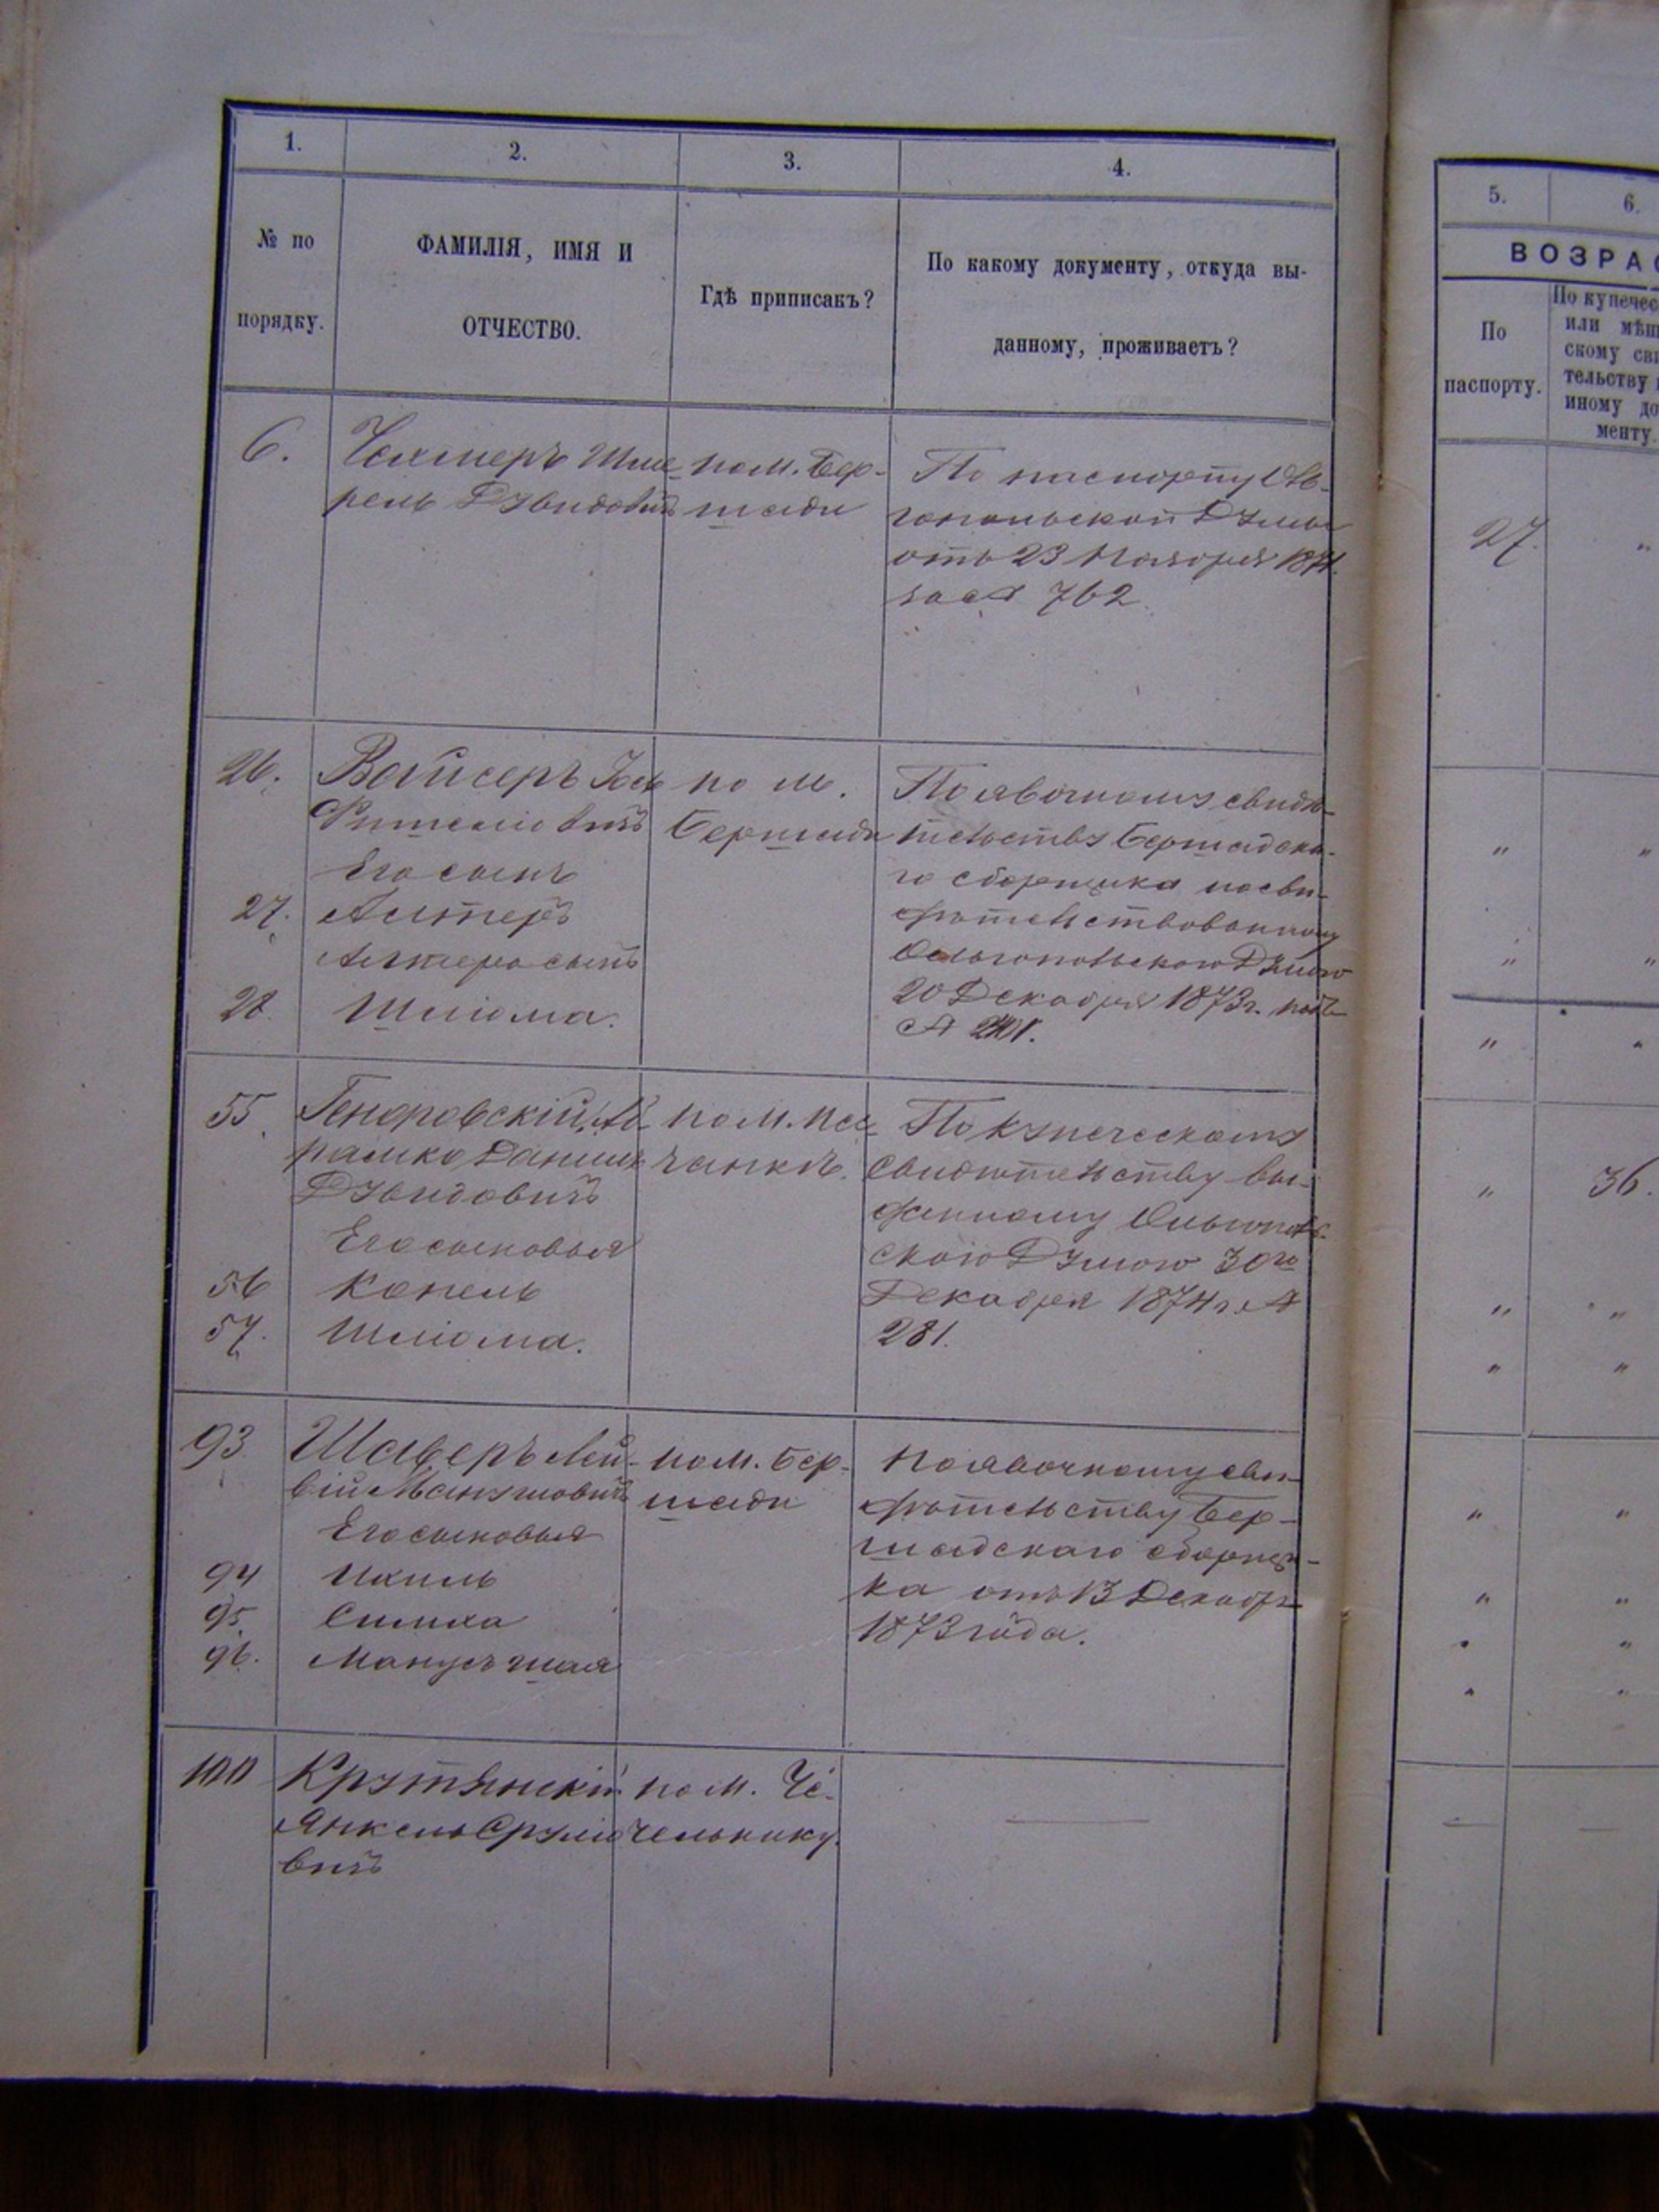 1.
2.
3.
4.
№ по
порядку.
ФАМИЛІЯ, ИМЯ И
ОТЧЕСТВО.
Гдѣ приписакъ?
По какому документу, откуда вы-
данному, проживаетъ?
6.
Шме-
рель Дувидовичъ
по м. Бер-
шади
По паспорту Оль-
гопольской Думы
отъ 23 Ноября 1871.
за № 762
26.
Вайсеръ Іось
Фишелiовичъ
Его сынъ
27. Алтеръ
Алтера сынъ
28. Шліома.
по м.
Бершади
По явочному свидѣ-
тельству Бершадска-
го сборщика засви-
дѣтельствованному
Ольгопольскою Думою
20 Декабря 1873 г. подъ
№ 241.
55.
Аб-
рамко Данил
Дувидовичъ
Его сыновья
56 Копель
57. Шліома.
по м. Пес-
чанкѣ.
По купеческому
свидѣтельству вы-
данному Ольгополь-
скою Думою 30го
Декабря 1874 г. №
281.
93.
Шаферъ Лей-
бій Манусовичъ
Его сыновья
94 Ихиль
95. Симха
96. Манусъ Шая
по м. Бер-
шади
По явочному сви-
дѣтельству Бер-
шадскаго сборщи-
ка отъ 13 Декабря
1873 года.
100
Крутянскій
Янкель Срулiо
вичъ
по м. Че-
чельнику.
5.
6.
ВОЗРАС
По
паспорту.
По купечес
или мѣщ
скому сви
тельству
иному до
менту.
27.
36.